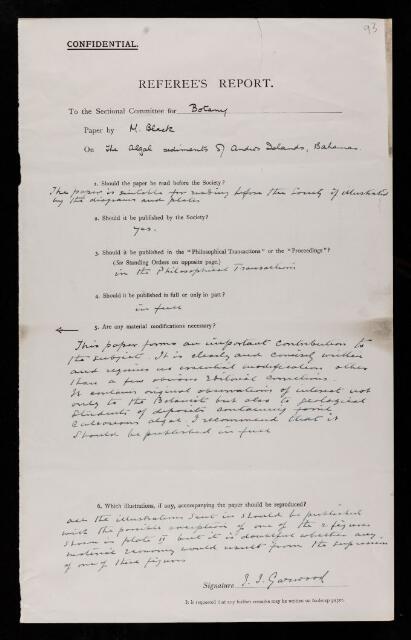 93
CONFIDENTIAL.
REFEREE'S REPORT.
To the Sectional Committee for Botany
Paper by M. Black
On The Algal sediments of Andros Islands, Bahamas.
1. Should the paper be read before the Society?
The paper is suitable for reading before the Society if illustrated
by the diagrams and plates
2. Should it be published by the Society?
Yes.
3. Should it be published in the "Philosophical Transactions" or the "Proceedings"?
(See Standing Orders on opposite page.)
in the Philosophical Transactions
4. Should it be published in full or only in part?
in full
5. Are any material modifications necessary?
This paper forms an important contribution to
the subject. It is clearly and concisely written
and requires no essential modification other
than a few obvious Editorial corrections.
It contains original observations of interest not
only to the Botanist but also to geological
Students of deposits containing fossil
calcareous algae. I recommend that it
should be published in full
6. Which illustrations, if any, accompanying the paper should be reproduced?
all the illustrations sent in should be published
with the possible exception of one of the 2 figures
shown in plate II but it is doubtful whether any
material economy would result from the supression
of one of these figures
Signature E. J. Garwood
It is requested that any further remarks may be written on foolscap paper.